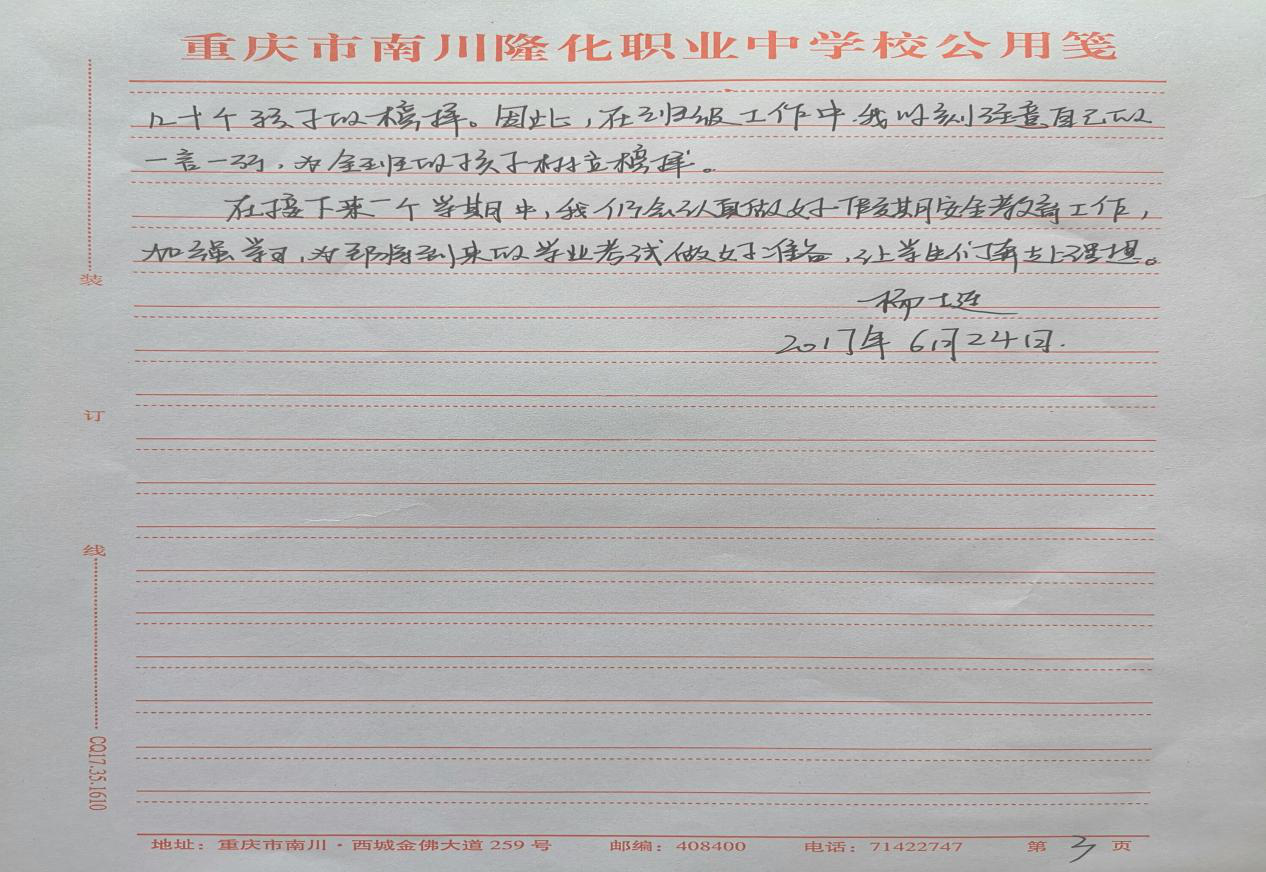 重庆市南川隆化职业中学校公用笺
几十个孩子的榜样。因此,在班级工作中我时刻注意自己的
一言一行,为全班的孩子树立榜样。
在接下来一个学期中,我们会认真做好假期安全教育工作,
加强学习,为即将到来的学业考试做好准备,让学生们奔赴理想。
2017年6月24日.
装
订
线
CQ17.35.1610
地址:重庆市南川·西城金佛大道259号 邮编:408400 电话:71422747 第3页